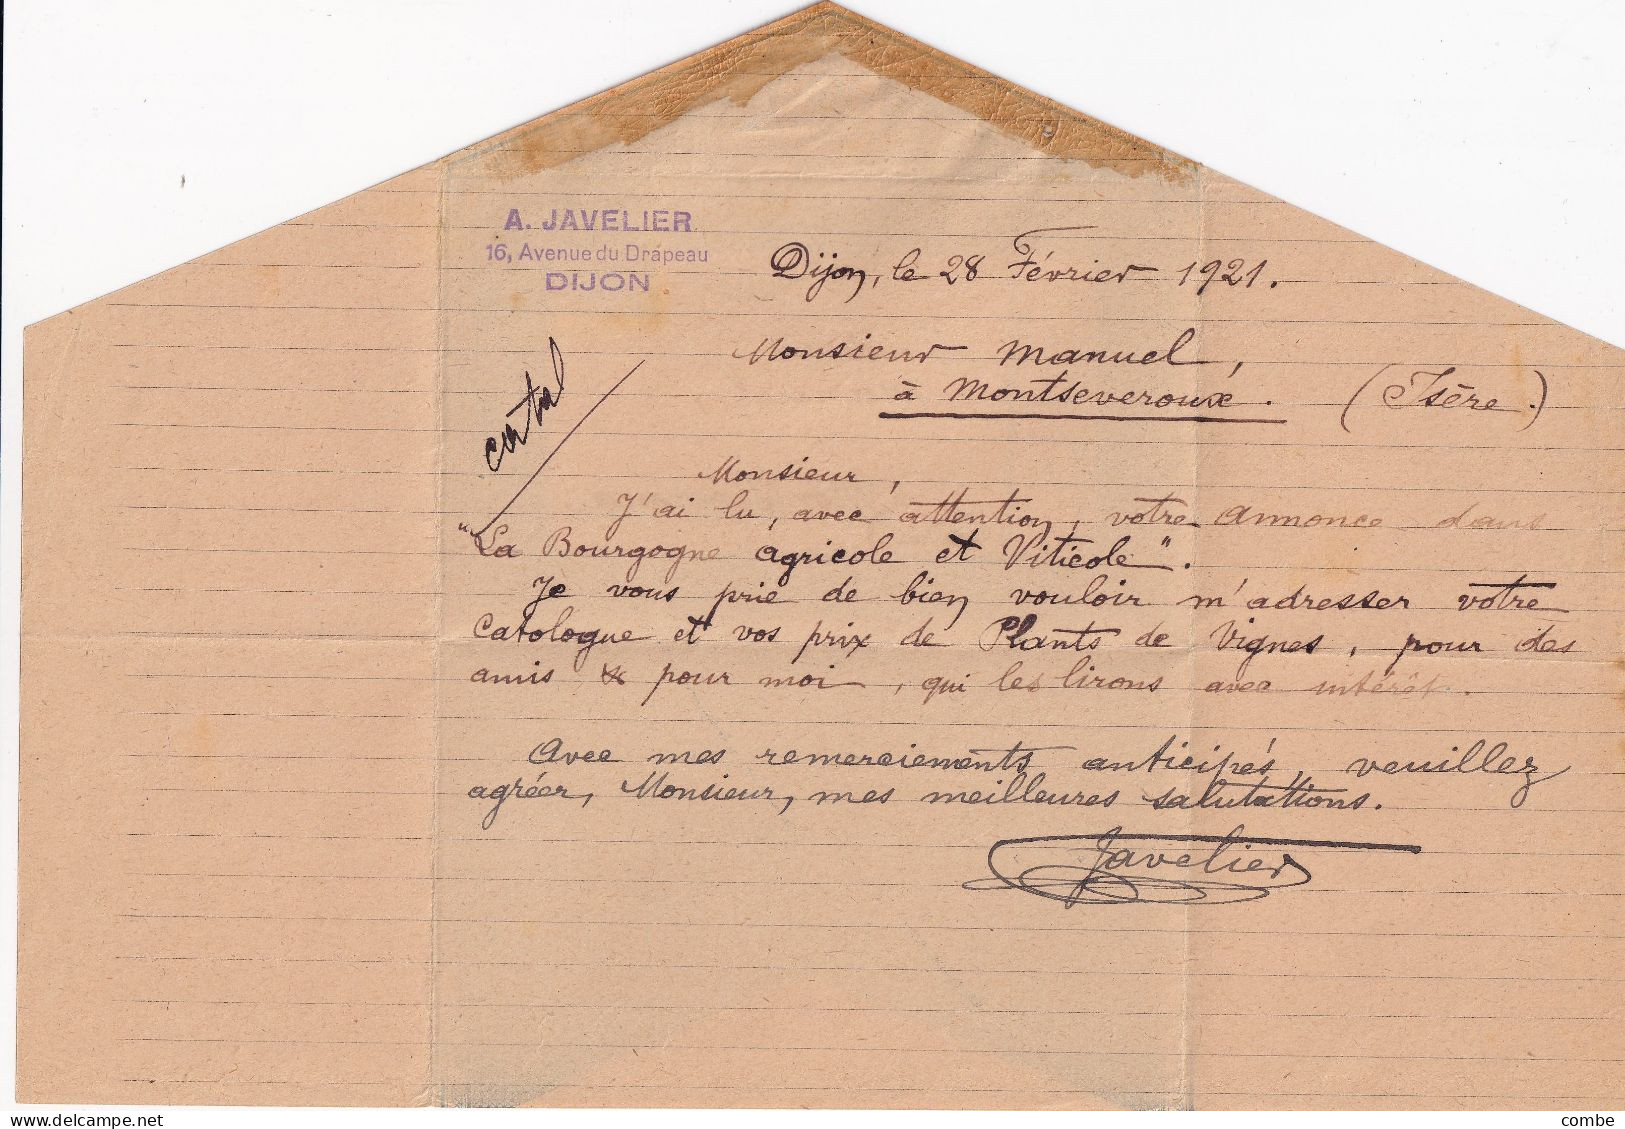 A. JAVELIER
16, Avenue du Drapeau
DIJON
Dijon, le 28 Février 1921.
Monsieur Manuel,
à Montseveroux. (Isère.)
Monsieur,
J'ai lu, avec attention, votre annonce dans
"La Bourgogne agricole et Viticole".
Je vous prie de bien vouloir m'adresser votre
Catologue et vos prix de Plants de Vignes, pour des
amis & pour moi, qui les lirons avec intérêt.
Avec mes remerciements anticipés, veuillez
agréer, Monsieur, mes meilleures salutations.
Javelier
delcampe.net
combe